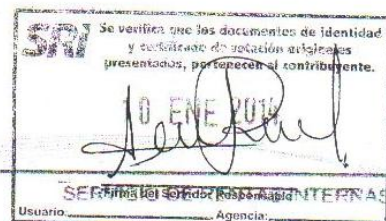 SRI
Se verifica que los documentos de identidad
y certificado de votación originales
presentados, pertenecen al contribuyente.
10 ENE 2014
Firma del Servidor Responsable
INTERNAS
Usuario: Agencia: